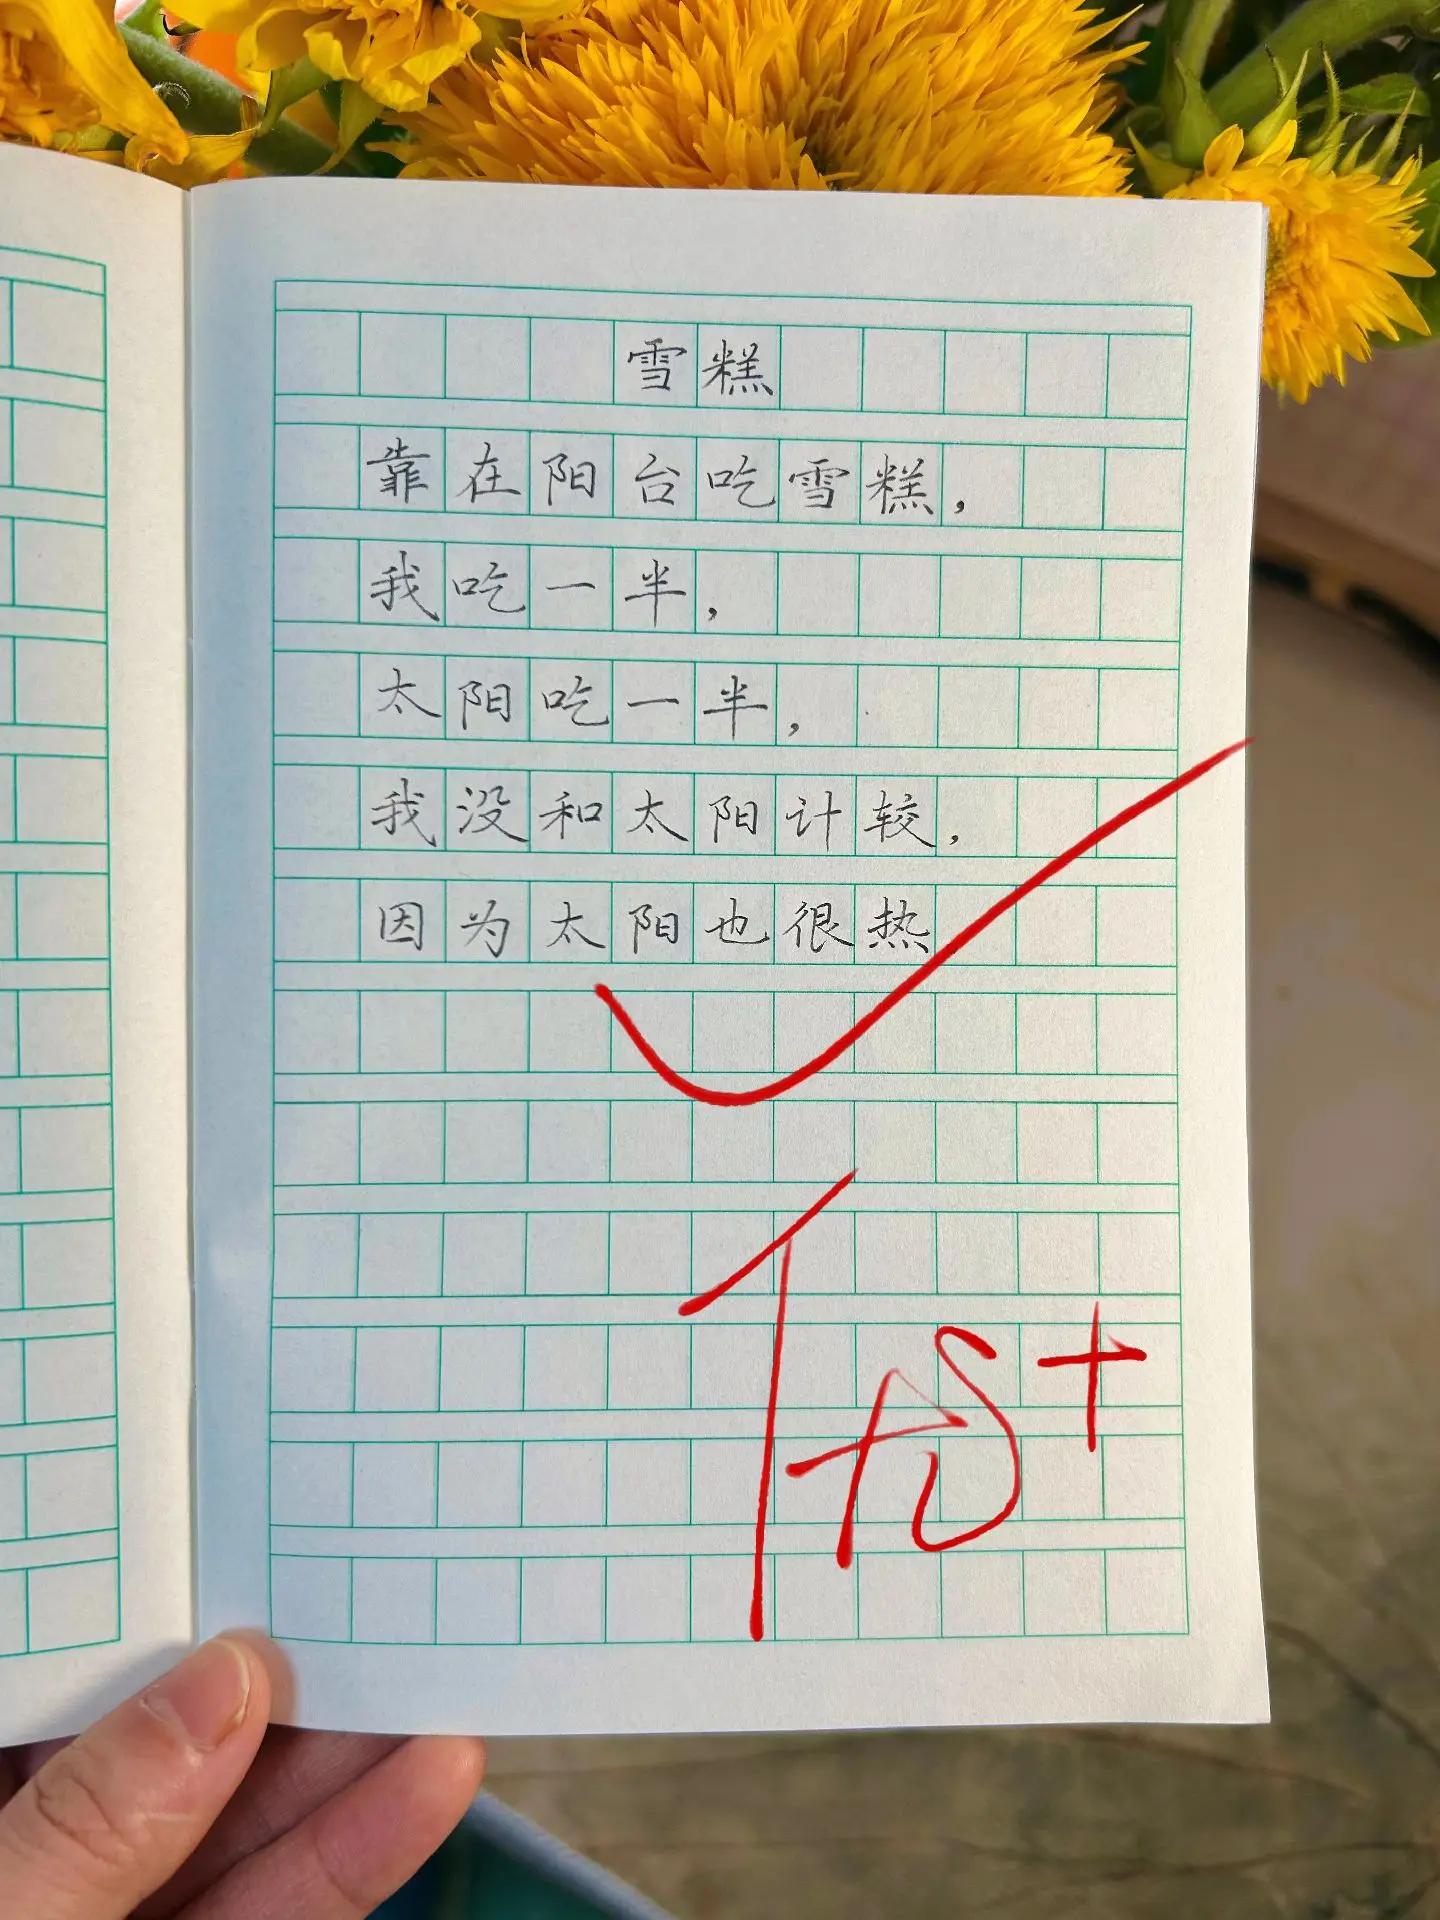 雪糕
靠在阳台吃雪糕，
我吃一半，
太阳吃一半，
我没和太阳计较，
因为太阳也很热